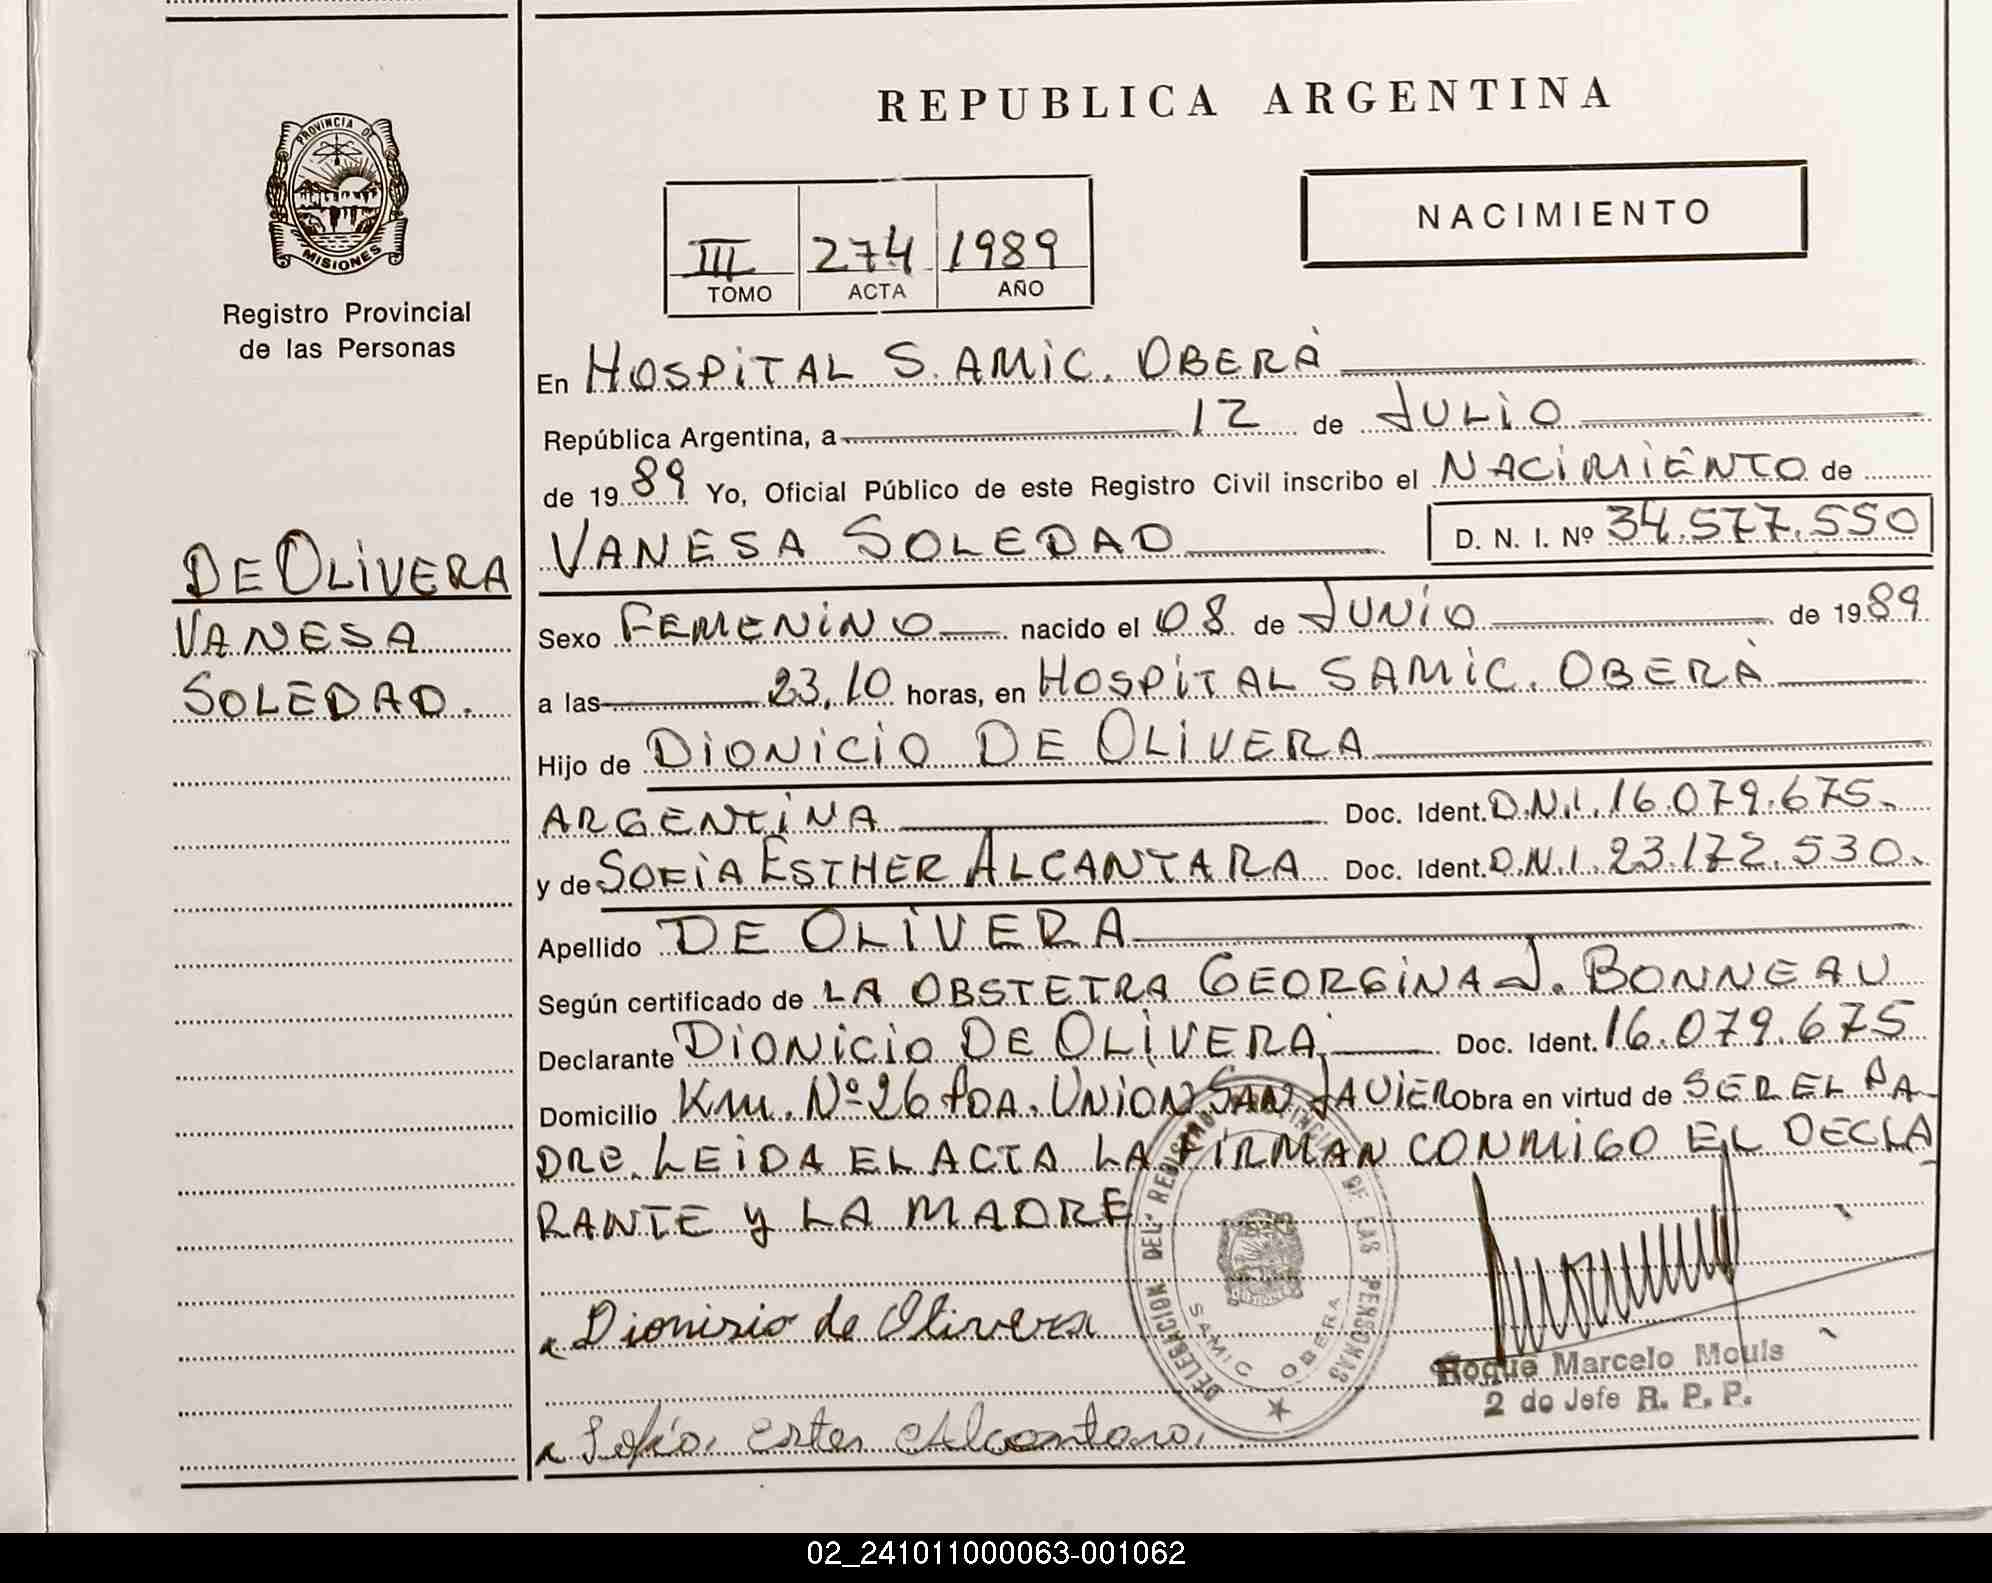 REPUBLICA ARGENTINA
PROVINCIA DE
MISIONES
Registro Provincial
de las Personas
III 274 1989
TOMO ACTA AÑO
NACIMIENTO
DE OLIVERA
VANESA
SOLEDAD.
En HOSPITAL S. AMIC. OBERÁ
República Argentina, a 12 de JULIO
de 1989 Yo, Oficial Público de este Registro Civil inscribo el NACIMIENTO de
VANESA SOLEDAD D. N. I. Nº 34.577.550
Sexo FEMENINO nacido el 08 de JUNIO de 1989
a las 23,10 horas, en HOSPITAL SAMIC. OBERÁ
Hijo de DIONICIO DE OLIVERA
ARGENTINA Doc. Ident. D.N.I. 16.079.675.
y de SOFIA ESTHER ALCANTARA Doc. Ident. D.N.I. 23.172.530.
Apellido DE OLIVERA
Según certificado de LA OBSTETRA GEORGINA J. BONNEAU
Declarante DIONICIO DE OLIVERA, Doc. Ident. 16.079.675
Domicilio Km. Nº 26 PDA. UNION SAN JAVIER Obra en virtud de SER EL PA-
DRE. LEIDA EL ACTA LA FIRMAN CONMIGO EL DECLA
RANTE Y LA MADRE
DELEGACION DEL REGISTRO PROVINCIAL DE LAS PERSONAS
SAMIC OBERA
Dionisio de Olivera
Roque Marcelo Mouls
2 do Jefe R. P. P.
Sofía, Ester Alcantara,
02_241011000063-001062